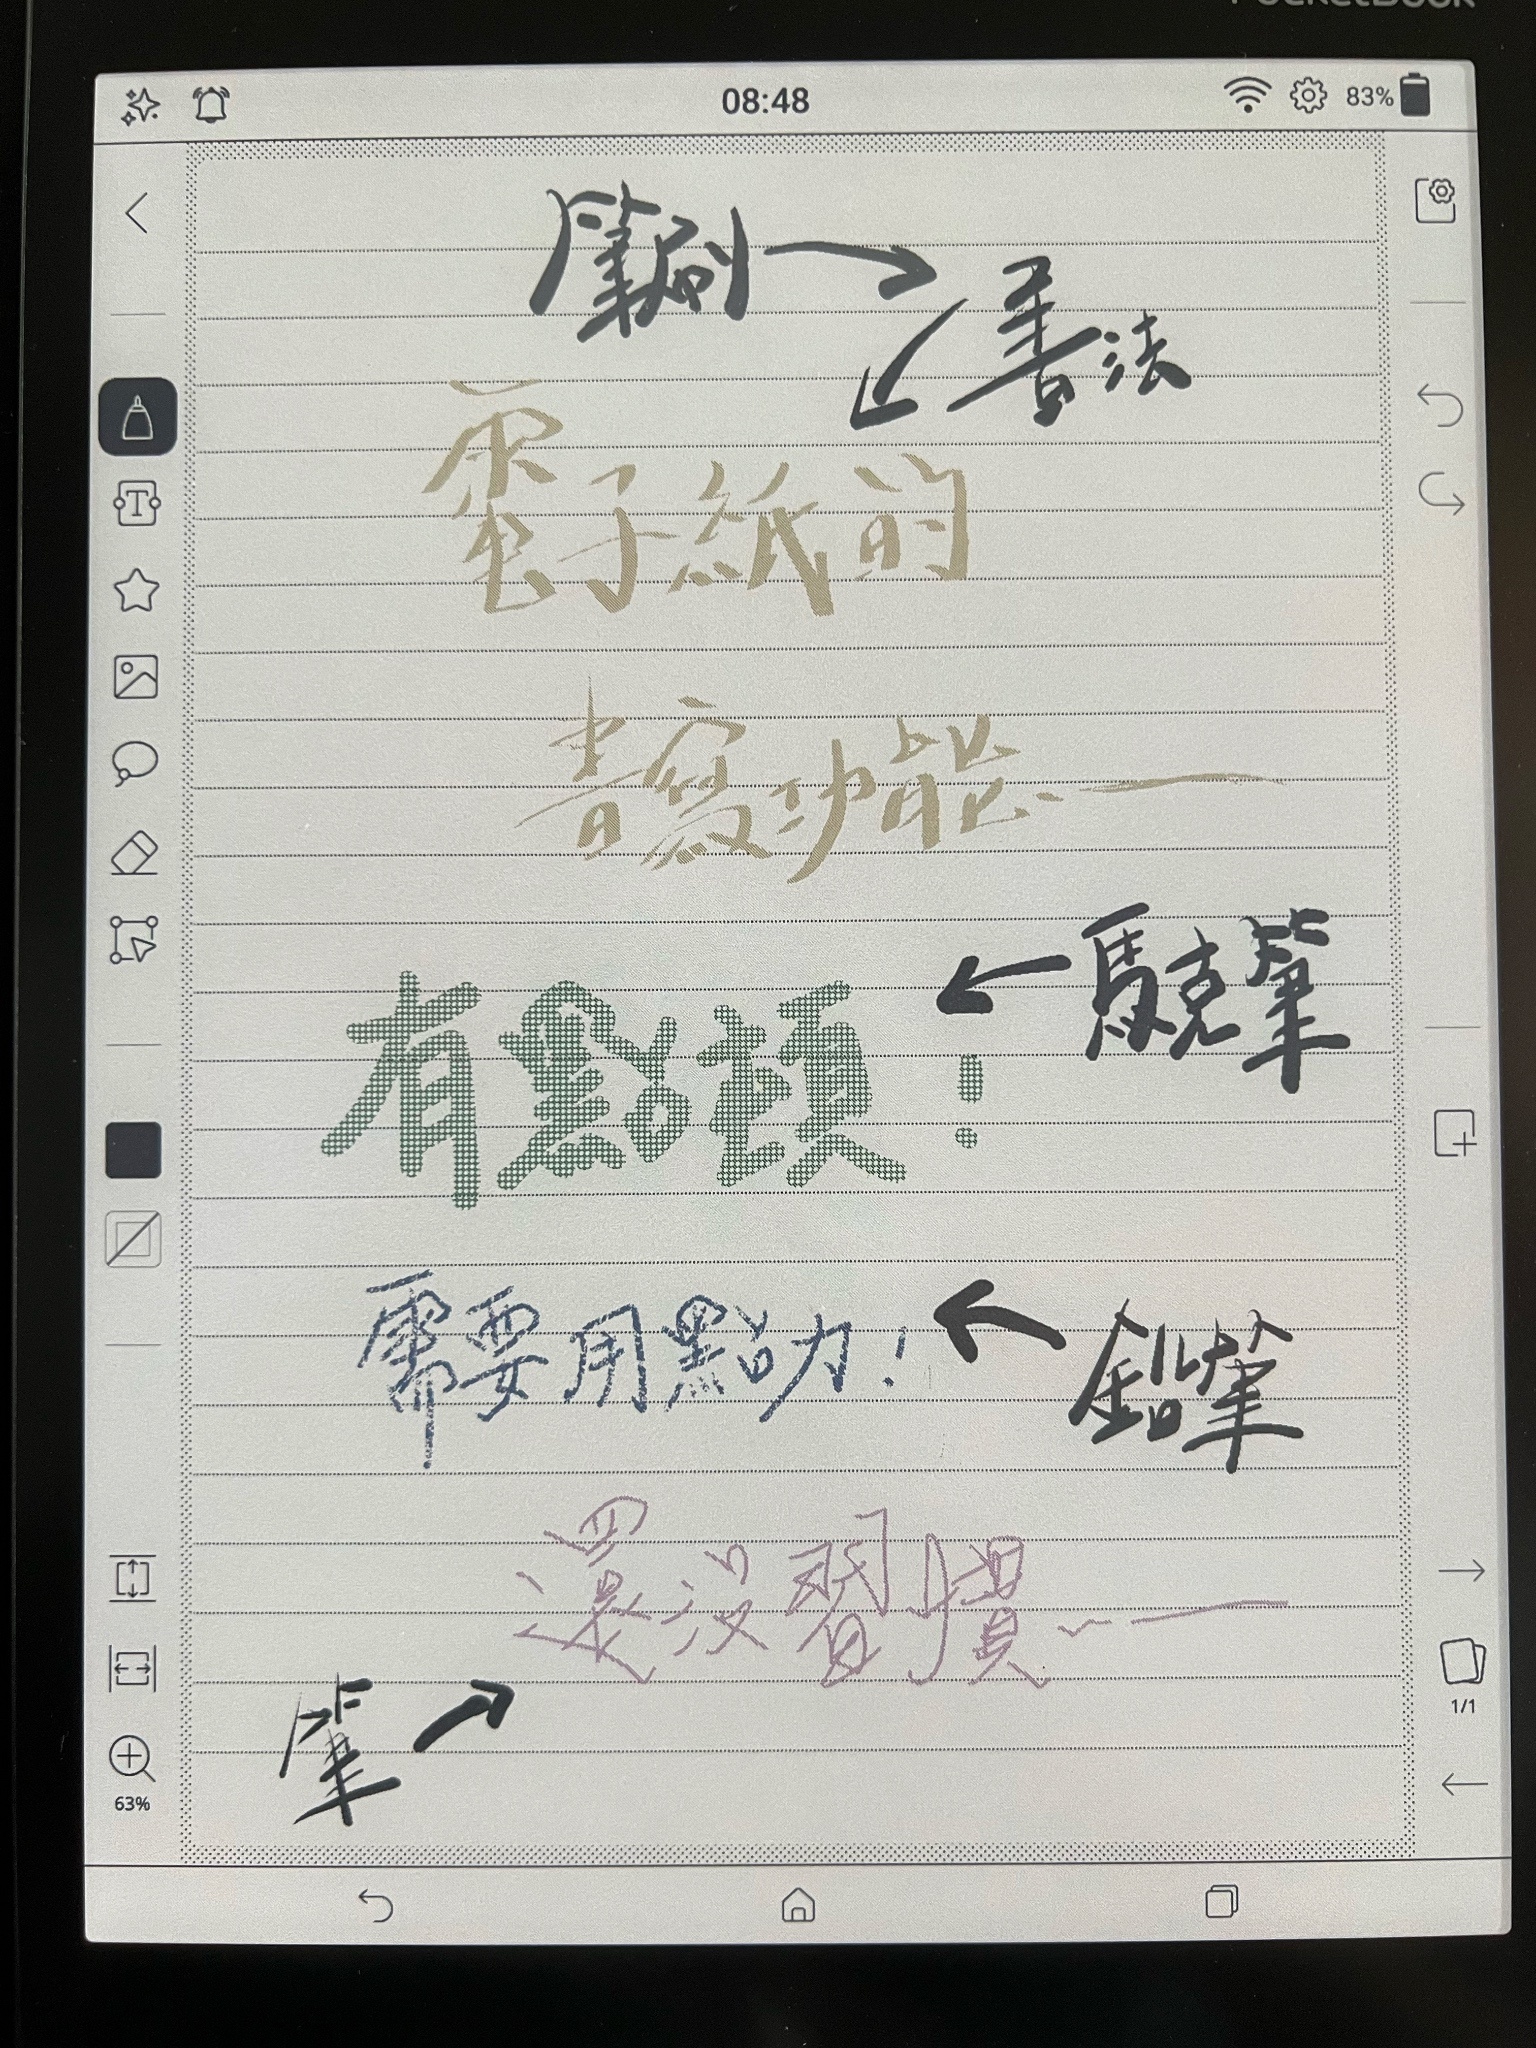 PocketBook
08:48
83%
筆刷
書法
電子紙的
書寫功能
有點頓！
馬克筆
需要用點力！
鉛筆
還沒習慣
筆
1/1
63%